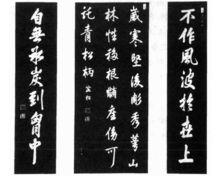 不作風波於世上
歲寒堅後彫秀萼山
林性移根賭座傷可
託青松柄
自無冰炭到胸中